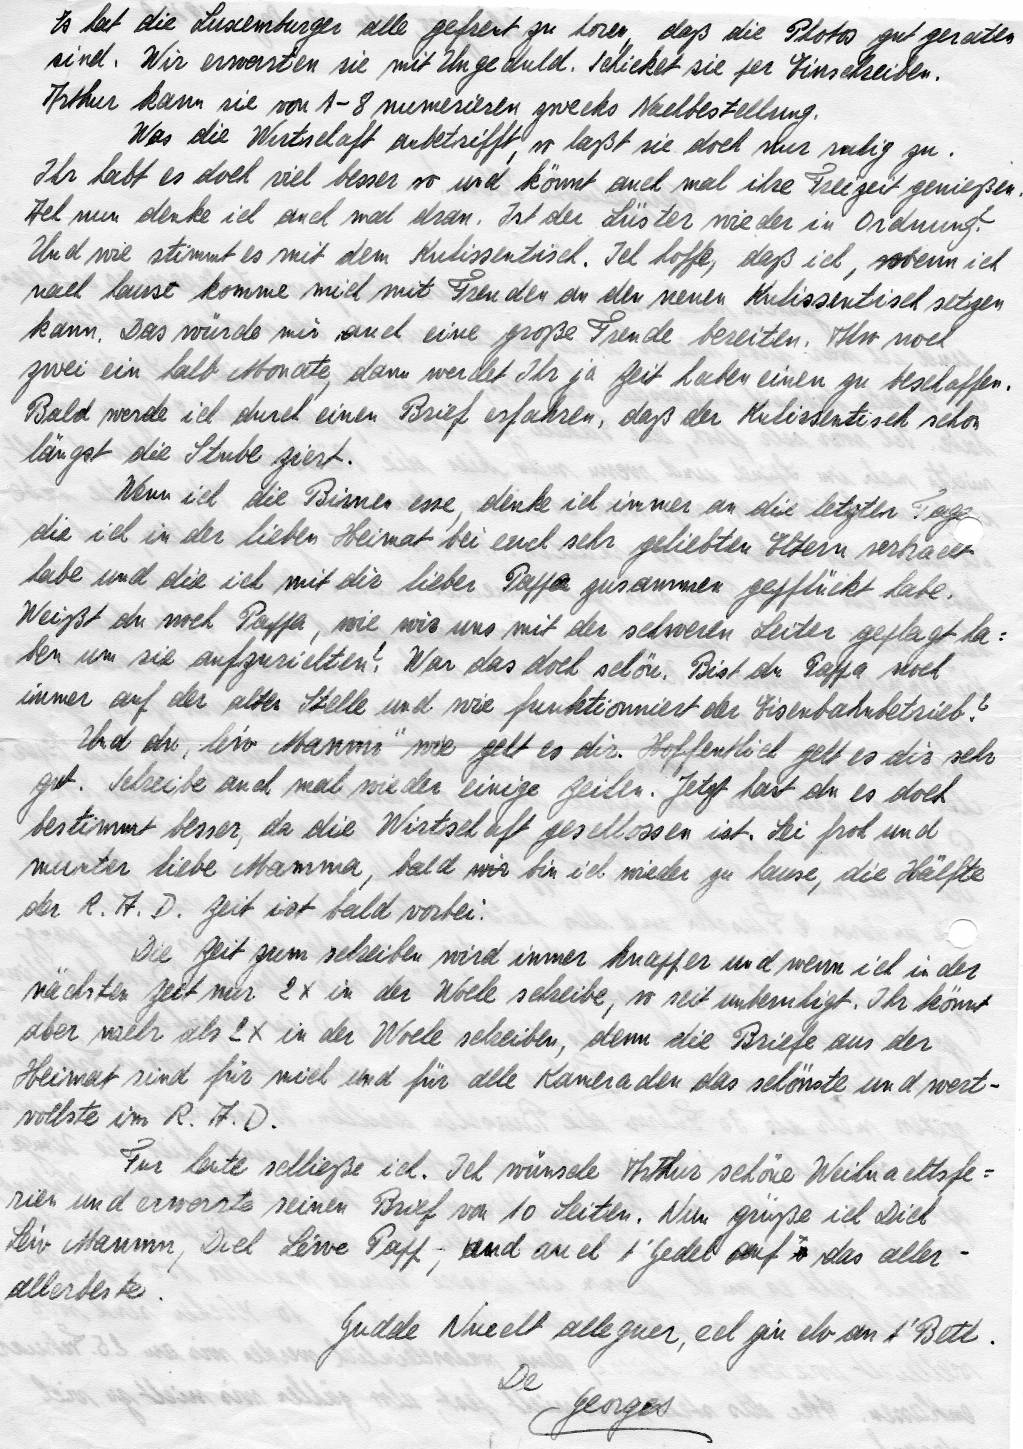 Es hat die Luxemburger alle gefreut zu hören, daß die Photos gut geraten
sind. Wir erwarten sie mit Ungeduld. Schicket sie per Einschreiben.
Arthur kann sie von 1-8 numerieren zwecks Nachbestellung.
Was die Wirtschaft anbetrifft, so laßt sie doch nur ruhig zu.
Ihr habt es doch viel besser so und könnt auch mal ihre Freizeit genießen.
Ach nun denke ich auch mal dran. Ist der Lüster wieder in Ordnung?
Und wie stimmt es mit dem Kulissentisch. Ich hoffe, daß ich, wenn ich
nach hause komme mich mit Freuden an den neuen Kulissentisch setzen
kann. Das würde mir auch eine große Freude bereiten. Nur noch
zwei ein halb Monate, dann werdet Ihr ja Zeit haben einen zu beschaffen.
Bald werde ich durch einen Brief erfahren, daß der Kulissentisch schon
längst die Stube ziert.
Wenn ich die Birnen esse, denke ich immer an die letzten Tage
die ich in der lieben Heimat bei euch sehr geliebten Eltern verbracht
habe und die ich mit dir lieber Pappa zusammen gepflückt habe.
Weißt du noch Pappa, wie wir uns mit der schweren Leiter geplagt ha=
ben um sie aufzurichten? War das doch schön. Bist du Pappa noch
immer auf der alten Stelle und wie funktionniert der Eisenbahnbetrieb?
Und du, leiv Mamm" wie geht es dir. Hoffentlich geht es dir sehr
gut. Schreibe auch mal wieder einige Zeilen. Jetzt hast du es doch
bestimmt besser, da die Wirtschaft geschlossen ist. Sei froh und
munter liebe Mamma, bald bin ich wieder zu hause, die Hälfte
der R. A. D. Zeit ist bald vorbei.
Die Zeit zum schreiben wird immer knapper und wenn ich in der
nächsten Zeit nur 2x in der Woche schreibe, so seit unberuhigt. Ihr könnt
aber mehr als 2x in der Woche schreiben, denn die Briefe aus der
Heimat sind für mich und für alle Kameraden das schönste und wert-
vollste im R. A. D.
Fur heute schließe ich. Ich wünsche Arthur schöne Weihnachtsfe=
rien und erwarte seinen Brief von 10 Seiten. Nun grüße ich Dich
Leiv Mamm, Dich Léiwe Papp, und auch t'Gedel auf das aller-
allerbeste.
Gudde Nuecht alleguer, ech gin elo an t'Bett.
De
Georges